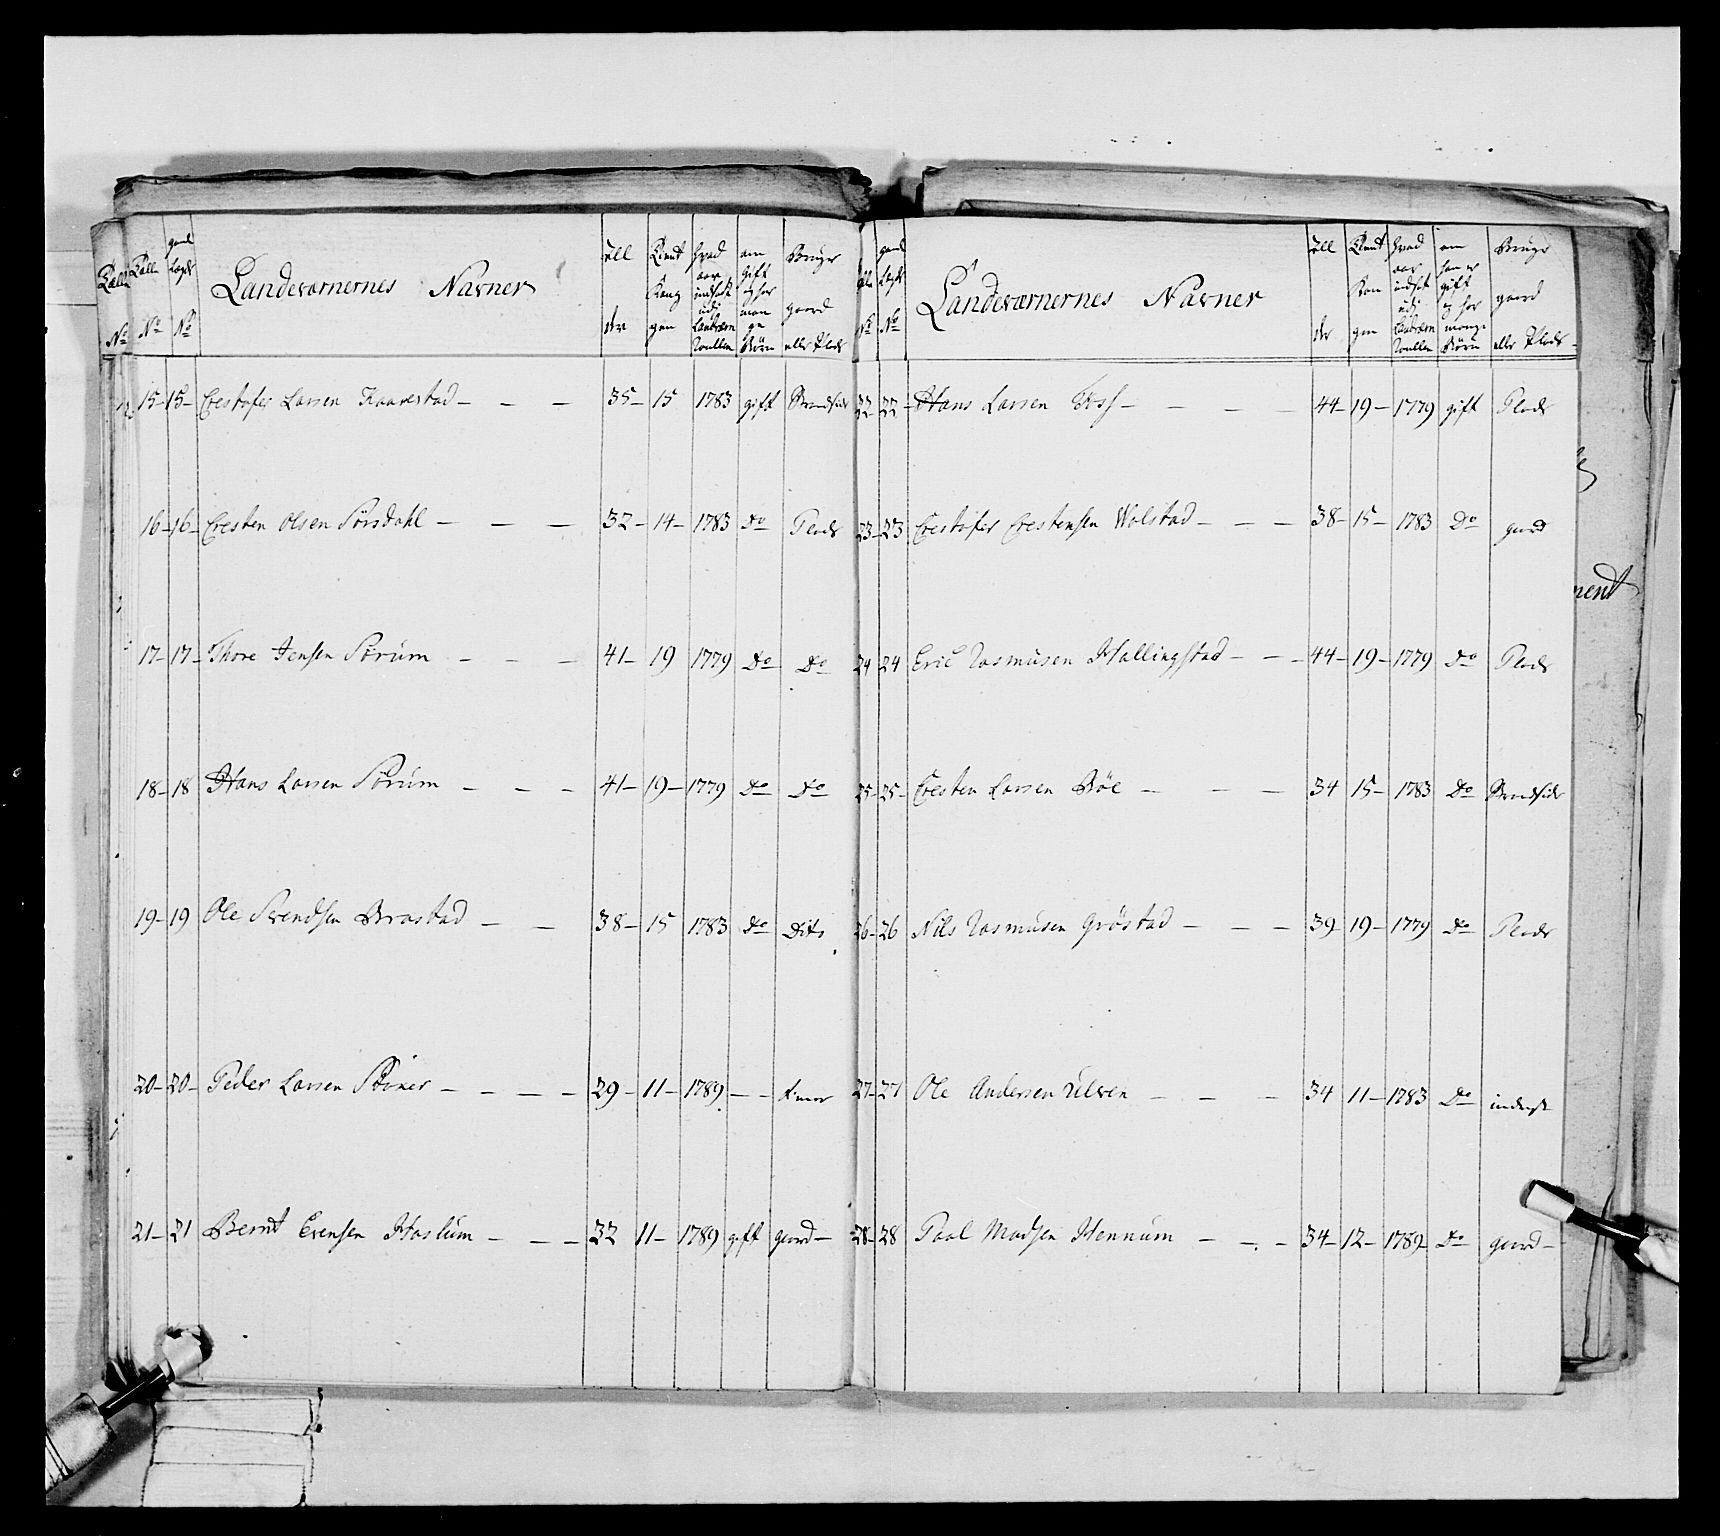 Rulle No gaml Lægds No Landeværnernes Navner all der tient Kongen hvad aar indsat udj Landværn Roullen om gift og har mange Børn Bruger gaard eller Plads
15 – 15 – Crestofer Larsen Kaarestad – – – 35 – 15 1783 gift Strandsider
16 – 16 – Cresten Olsen Sörsdahl – – – 32 – 14 – 1783 Do Plads
17 – 17 – Thore Jensen Sörum – – – 41 – 19 1779 Do Do
18 – 18 Hans Larsen Sörum – – – 41 – 19 – 1779 Do Do
19 – 19 Ole Svendsen Brastad – – 38 – 15 1783 Do Dito
20 – 20 – Peder Larsen – – – – 29 – 11 – 1789 – –
21 – 21 Bernt Evensen Haslum – – – 32 11 – 1789 gift gaard –
No gaml Lægds No Landeværnernes Navner all der tient Kongen hvad aar indsat udi Landværn Roullen om han er gift og har mange Börn Bruger gaard eller Plads
22 22 – Hans Larsen Foss – – – – 44 – 19 – 1779 gift Plads
23 – 23 Crestofer Crestensen Wolstad – – – 38 – 15 – 1783 Do gaard
24 24 Eric Rasmusen Hallingstad – – – 44 – 19 – 1779 Do Plads
25 – 25 – Cresten Larsen Böe – – – 34 15 – 1783 Do Strandsider
26 – 26 Nils Rasmusen Gröstad – – – 39 19 – 1779 Do Plads
27 – 27 Ole Andersen Ulven – – – 34 11 – 1783 Do inderst
28 – 28 Paal Madsen Hennum – – – 34 – 12 – 1789 Do gaard –